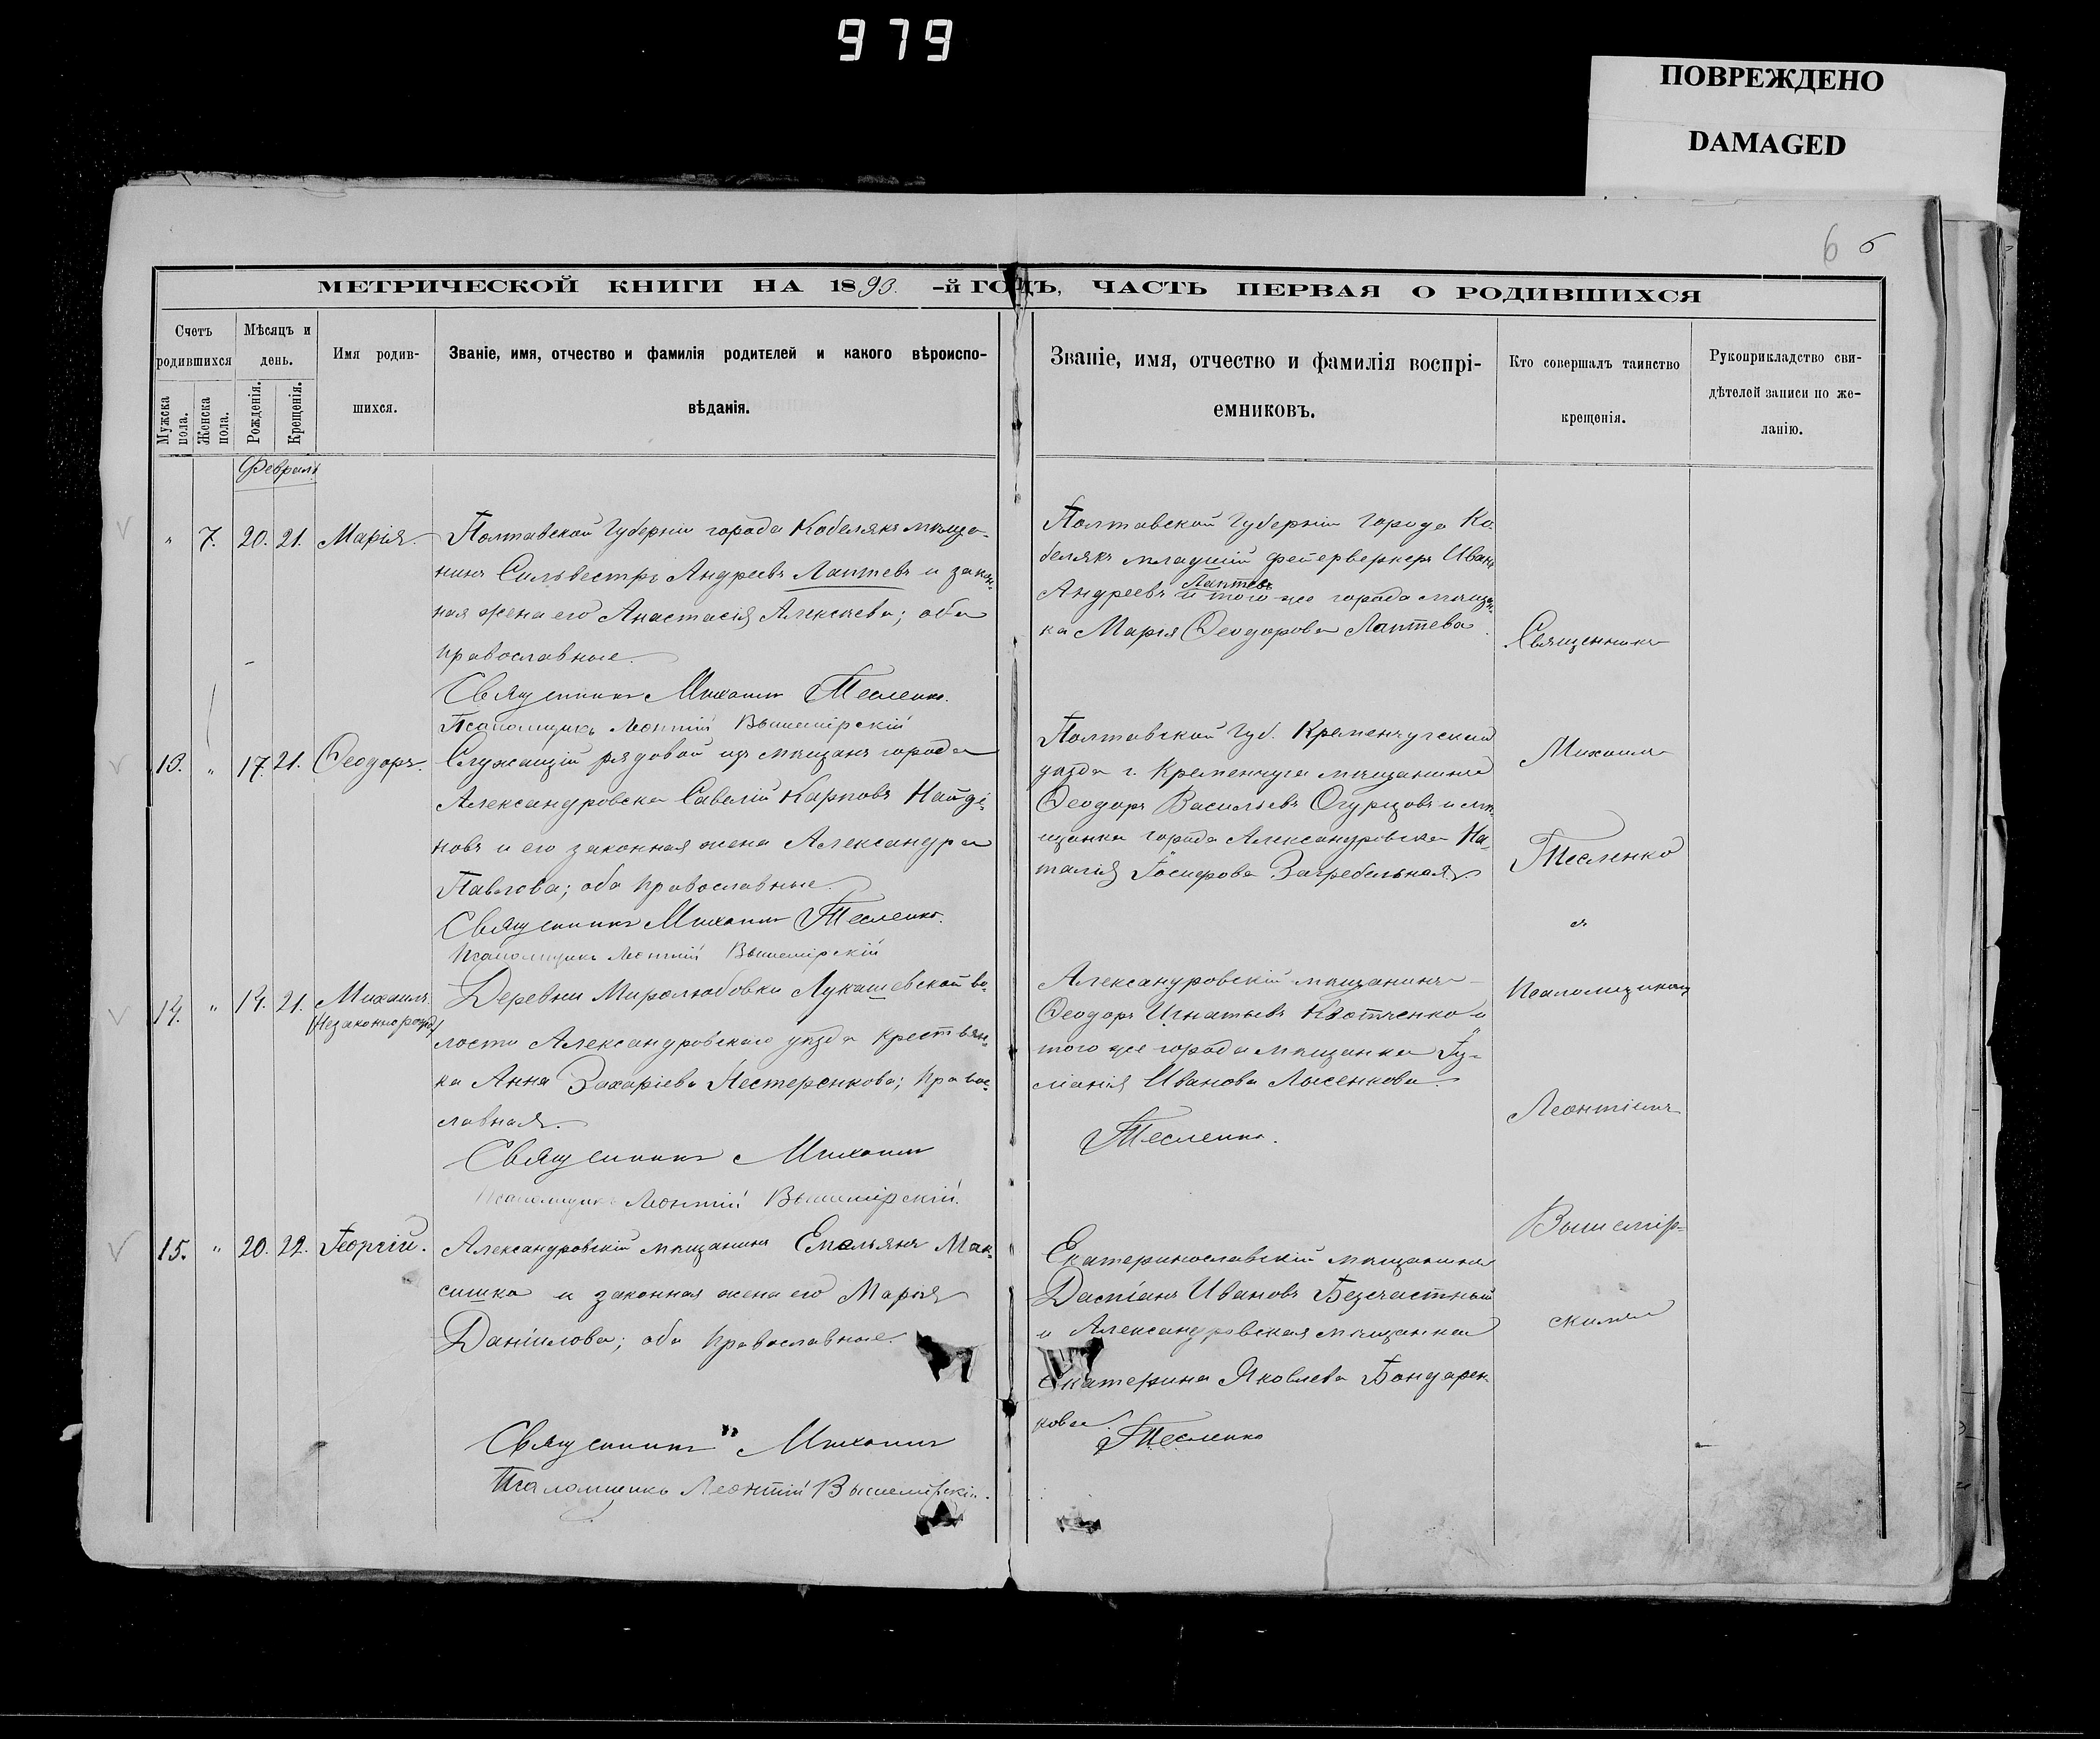 979
ПОВРЕЖДЕНО
DAMAGED
6 6
МЕТРИЧЕСКОЙ КНИГИ НА 1893. -й ГОДЪ, ЧАСТЬ ПЕРВАЯ О РОДИВШИХСЯ
Счетъ родившихся
Мужска пола.
Женска пола.
Мѣсяцъ и день.
Рожденія.
Крещенія.
Имя родив-
шихся.
Званіе, имя, отчество и фамилія родителей и какого вѣроиспо-
вѣданія.
Званіе, имя, отчество и фамилія воспрі-
емниковъ.
Кто совершалъ таинство
крещенія.
Рукоприкладство сви-
дѣтелей записи по же-
ланію.
Февраль
" 7. 20. 21. Марія.
Полтавской Губерніи города Кобелякъ мѣща-
нинъ Сильвестръ Андреевъ Лаптевъ и закон-
ная жена его Анастасія Алексѣева; оба
православные.
Священникъ Михаилъ Тесленко.
Псаломщикъ Леонтій Вышемірскій
Полтавской Губерніи города Ко-
белякъ младшій фейерверкеръ Иванъ
Андреевъ Лаптевъ и того же города мѣщан-
ка Марія Ѳеодорова Лаптева.
13. " 17. 21. Ѳеодоръ.
Служащій рядовой изъ мѣщанъ города
Александровска Савелій Карповъ Найді-
новъ и его законная жена Александра
Павлова; оба православные.
Священникъ Михаилъ Тесленко.
Псаломщикъ Леонтій Вышемірскій
Полтавской Губ. Кременчугскаго
уѣзда г. Кременчуга мѣщанинъ
Ѳеодоръ Васильевъ Огурцовъ и мѣ-
щанка города Александровска На-
талія Іосифова Загребельная.
14. " 14. 21. Михаилъ
(Незаконнорожд.)
Деревни Миролюбовки Лукашевской во-
лости Александровскаго уѣзда крестьян-
ка Анна Захаріева Нестеренкова; право-
славная.
Священникъ Михаилъ Тесленко.
Псаломщикъ Леонтій Вышемірскій.
Александровскій мѣщанинъ
Ѳеодоръ Игнатьевъ и
того же города мѣщанка Іу-
ліанія Иванова Лысенкова.
15. " 20. 22. Георгій.
Александровскій мѣщанинъ Емельянъ Мак-
сишко и законная жена его Марія
Даніилова; оба православные.
Священникъ Михаилъ Тесленко
Псаломщикъ Леонтій Вышемірскій.
Екатеринославскій мѣщанинъ
Даміанъ Ивановъ Безчастный
и Александровская мѣщанка
Екатерина Яковлева Бондарен-
кова.
Священникъ
Михаилъ
Тесленко
съ
псаломщикомъ
Леонтіемъ
Вышемір-
скимъ